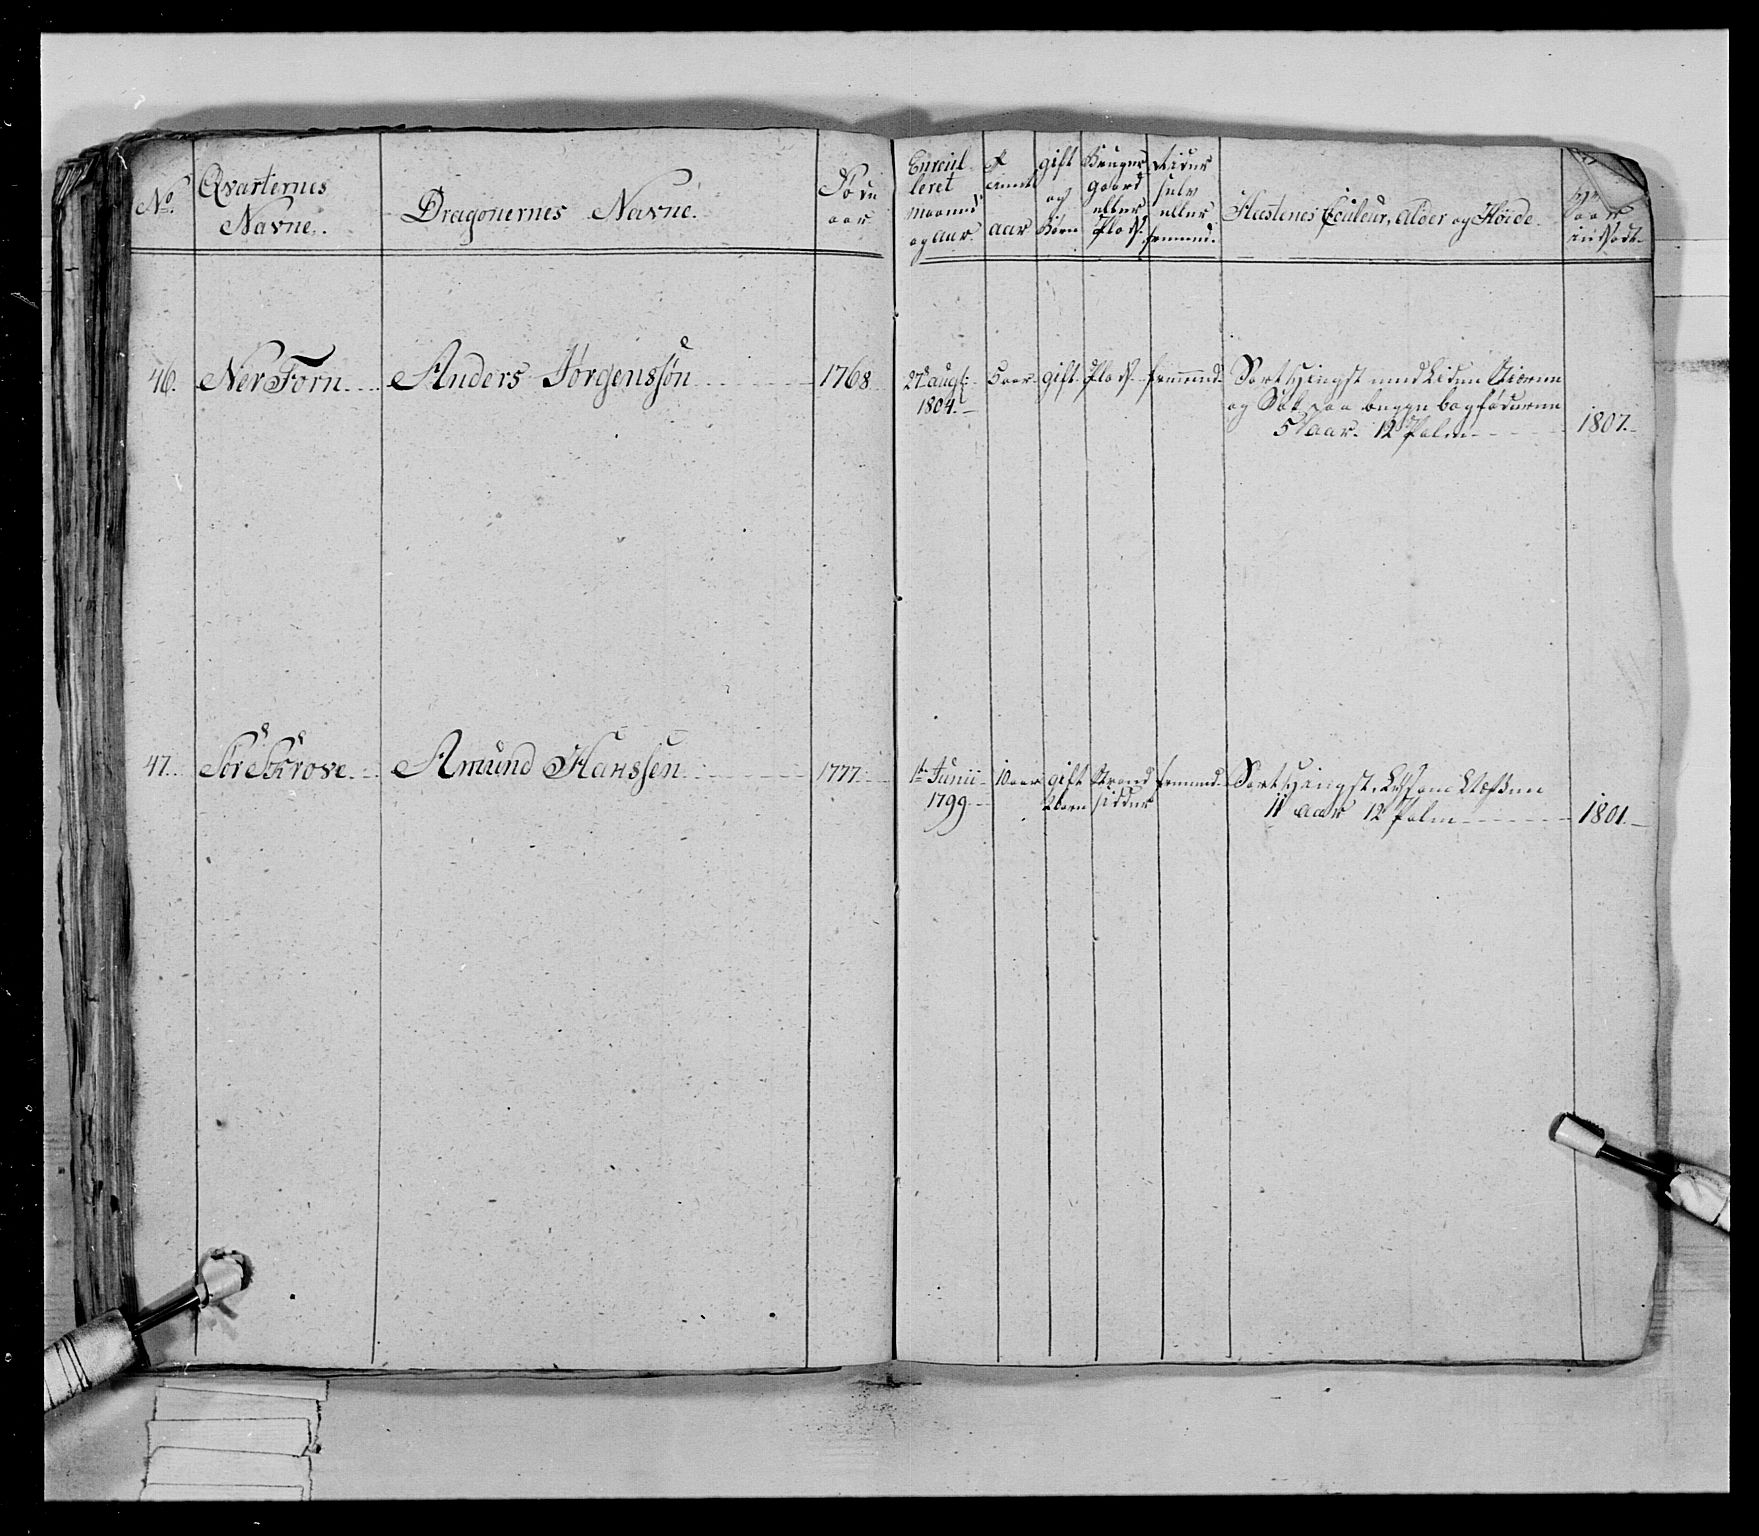 No.
Qvarternes
Navne.
Dragonernes Navne.
Føde
aar
Enroul-
leret
Maaned
og Aar.
aar
gift
og
Børn
Bruger
gaard
eller
Plads.
Rider
selv
eller
fremmed.
Hæstenes Couleur, Alder og Høide.
aar
46. Ner Forn Anders Jørgenssøn 1768
27de augt.
1804.
gift Plads fremmed
Sort Hingst med Liden Stierne
og Sok paa begge bagfødderne
5 aar. 12 Palm
1807.
47. Sør Skrove Amund Hanssen 1777.
1te Junii
1799
10 aar gift Strand
sidder
fremmed
Sort Hingst,
11 aar 12 Palm
1801.